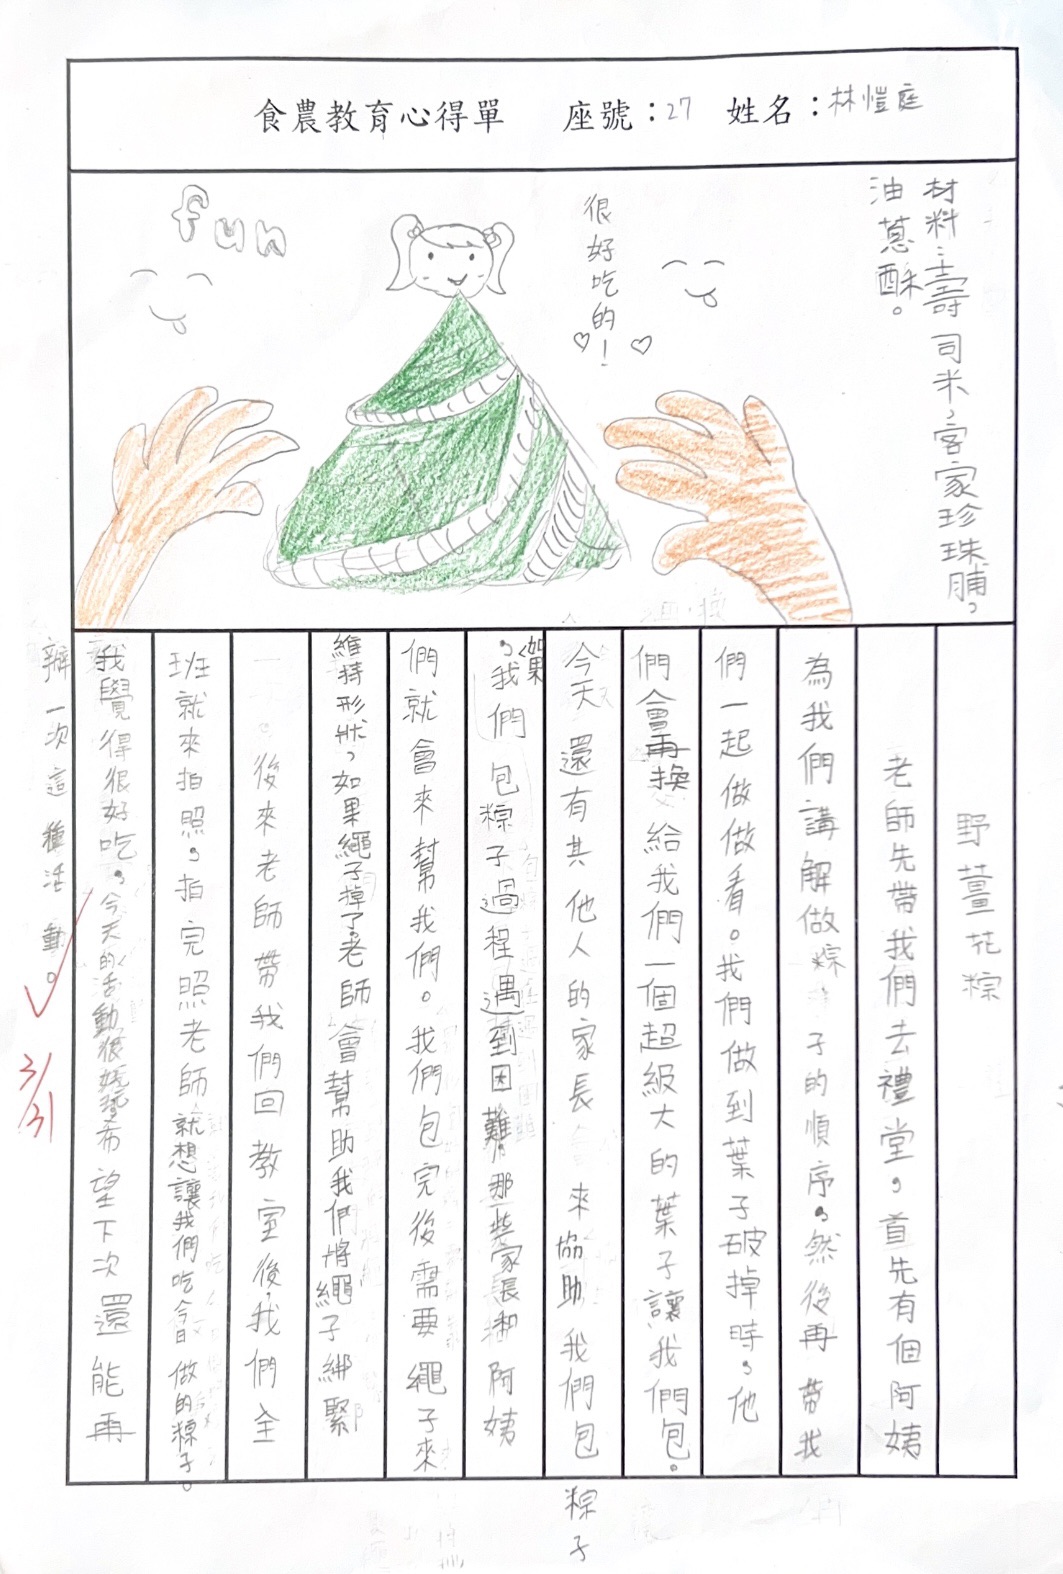 食農教育心得單 座號：27 姓名：林愷庭
材料：壽司米，客家珍珠脯，
油蔥酥。
很好吃的！
fun
野薑花粽
老師先帶我們去禮堂，首先有個阿姨
為我們講解做粽子的順序，然後再帶我
們一起做做看。我們做到葉子破掉時，他
們會再換給我們一個超級大的葉子讓我們包。
今天還有其他人的家長來協助我們包粽子
，如果我們包粽子過程遇到困難，那些家長和阿姨
們就會來幫我們。我們包完後需要繩子來
維持形狀，如果繩子掉了，老師會幫助我們將繩子綁緊
。後來老師帶我們回教室後，我們全
班就來拍照，拍完照老師就想讓我們吃今日做的粽子。
我覺得很好吃，今天的活動很好玩，希望下次還能再
辦一次這種活動。
3/31